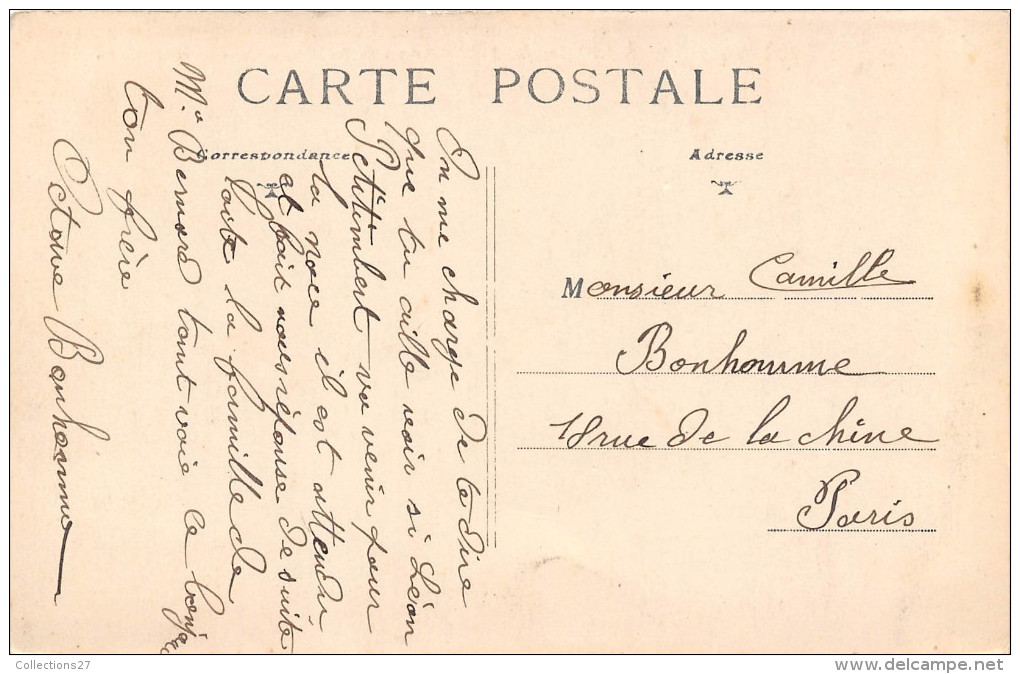 CARTE POSTALE
Correspondance
Adresse
On me charge de te dire
que tu aille voir si Léon
Petitimbert va venir pour
la noce il est attendu
et fait nous réponse de suite
toute la famille de
Mr Bernard t'envoie le bonjour
ton frère
Octave Bonhomme
Monsieur Camille
Bonhomme
18 rue de la Chine
Paris
Collections27
www.delcampe.net